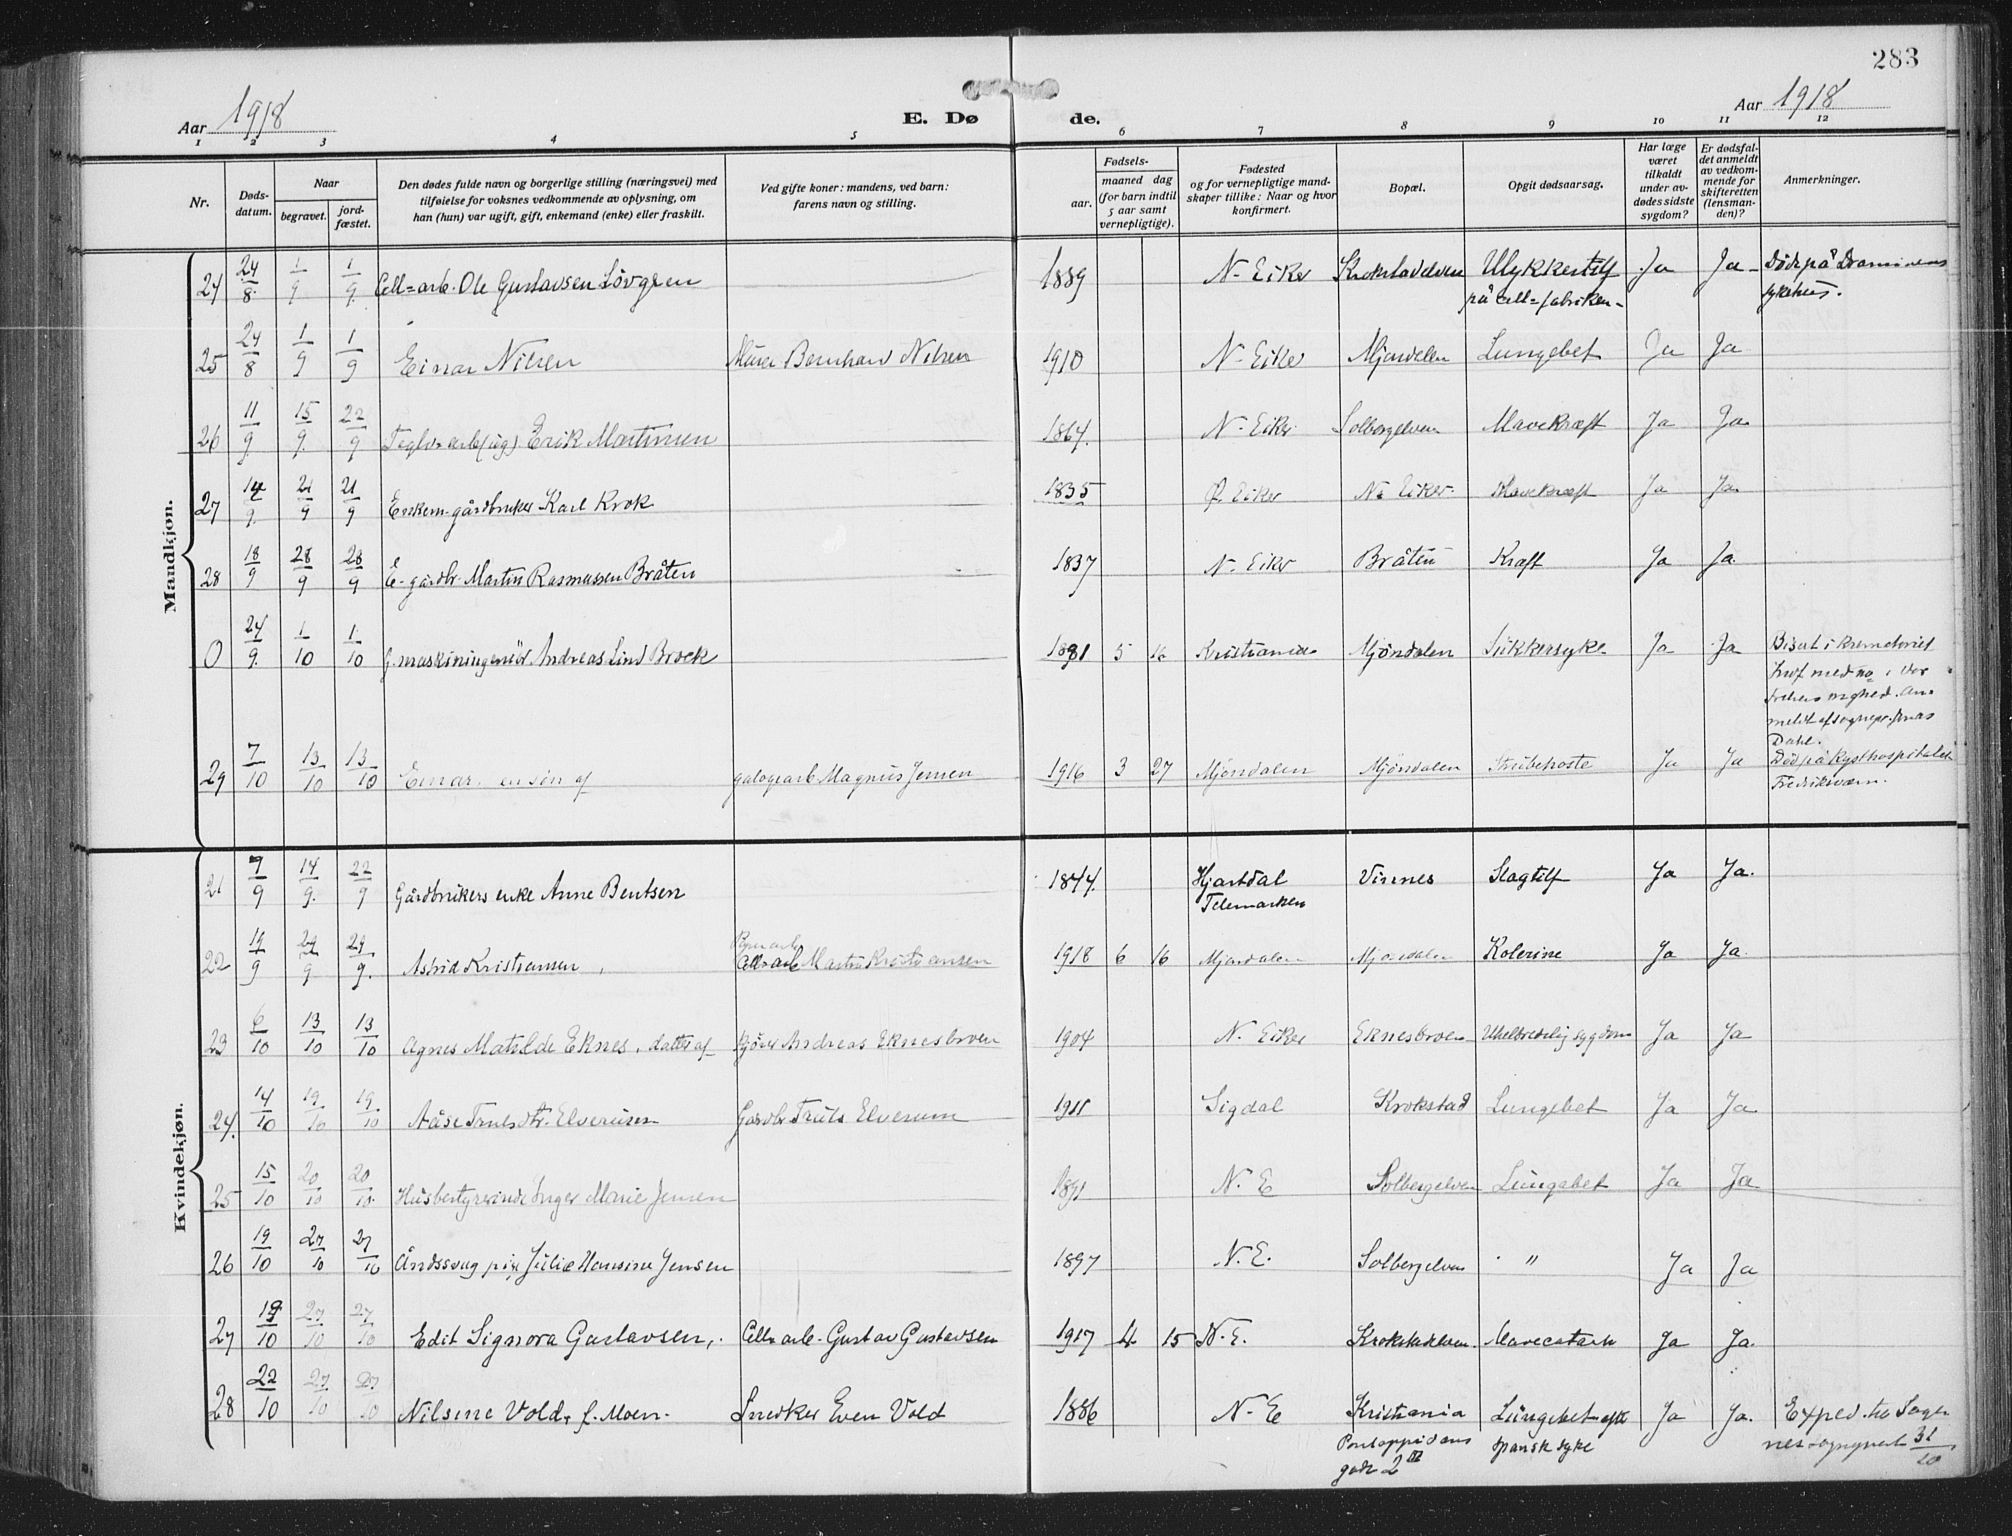 283
Aar 1918
E. Dø de.
Aar 1918
1 2 3 4 5 6 7 8 9 10 11 12
Nr.
Døds-
datum.
Naar
begravet.
jord-
fæstet.
Den dødes fulde navn og borgerlige stilling (næringsvei) med
tilføielse for voksnes vedkommende av oplysning, om
han (hun) var ugift, gift, enkemand (enke) eller fraskilt.
Ved gifte koner: mandens, ved barn:
farens navn og stilling.
Fødsels-
aar.
maaned dag
(for barn indtil
5 aar samt
vernepligtige).
Fødested
og for vernepligtige mand-
skaper tillike: Naar og hvor
konfirmert.
Bopæl.
Opgit dødsaarsag.
Har læge
været
tilkaldt
under av-
dødes sidste
sygdom?
Er dødsfal-
det anmeldt
av vedkom-
mende for
skifteretten
(lensman-
den)?
Anmerkninger.
Mandkjøn.
24 24/8 1/9 1/9 Cell=arb. Ole Gustavsen Lövgren 1889 N- Eiker Krokstadelven Ulykkestilf. Ja Ja Död på Drammens
på cell=fabriken sykehus.
25 24/8 1/9 1/9 Einar Nilsen Murer Bernhard Nilsen 1910 N- Eiker Mjöndalen Lungebet Ja Ja
26 11/9 15/9 22/9 Teglv=arb(ug) Erik Martinsen 1864. N- Eiker Solbergelven Mavekræft Ja Ja
27 14/9 21/9 21/9 Enkem. gårdbruker Karl Krok 1835 Ø. Eiker N= Eiker Mavekræft Ja Ja
28 18/9 28/9 28/9 E- gårdbr. Martin Rasmussen Bråten 1837 N- Eiker Bråten Kræft Ja Ja.
0 24/9 1/10 1/10 g. maskiningeniör Andreas Lind Brock 1881 5 Kristiania Mjöndalen Sukkersyke Ja Ja Bisat i krematoriet
Dahl.
29 7/10 13/10 13/10 Einar. en sön af galogearb. Magnus Jensen 1916 3 27 Mjöndalen Mjöndalen Strubehoste Ja Ja Död på Kysthospitalet
Fredriksværn.
Kvindekjøn.
21 7/9 14/9 22/9 Gårdbrukers enke Anne Bentsen 1844. Hjartdal Vinnes Slagtilf Ja Ja.
Telemarken
22 19/9 24/9 29/9 Astrid Kristiansen, Cell=arb Martin Kristiansen 1918 6 16 Mjöndalen Mjöndalen Kolerine Ja Ja.
23 6/10 13/10 13/10 Agnes Matilde Eknes, datter af kjörer Andreas Eknesbroen 1904 N. Eiker Eknesbroen Uhelbredelig sygdom Ja Ja
24. 14/10 19/10 19/10 Aåse Trulsdtr. Elverum Gårdbr Truls Elverum 1911 Sigdal Krokstad Lungebet Ja Ja
25 15/10 20/10 20/10 Husbestyrerinde Inger Marie Jensen 1891 N. E Solbergelven Lungebet Ja Ja
26 19/10 27/10 27/10 Åndssvag pike Julie Hansine Jensen 1897 N. E. Solbergelven " Ja Ja
27 19/10 27/10 27/10 Edit Signora Gustavsen, Cell=arb- Gustav Gustavsen 1917 4 15 N.E. Krokstadelven. Mavecatarh Ja Ja.
28 22/10 27/10 27/10 Nilsine Vold, f. Moen. Snedker Even Vold 1886 N- E Kristiania Lungebet. eft. Ja Ja. Exped. fra Sage-
Pontoppidans spansk syke nes sognepret 31/10
gade 2 III